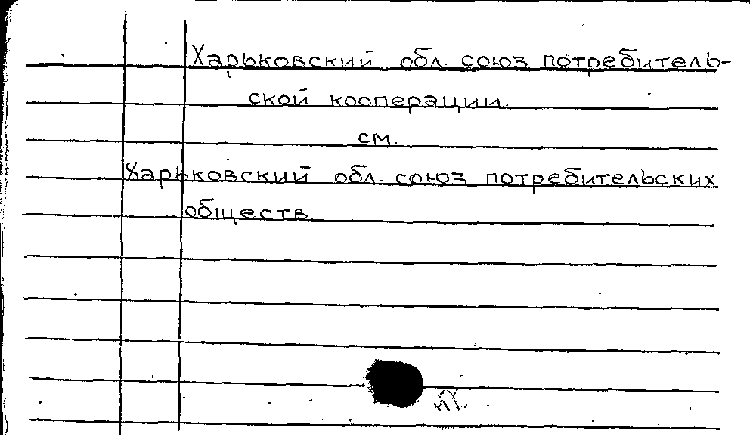 Харьковский обл. союз потребитель-
ской кооперации.
см.
Харьковский обл. союз потребительских
обществ